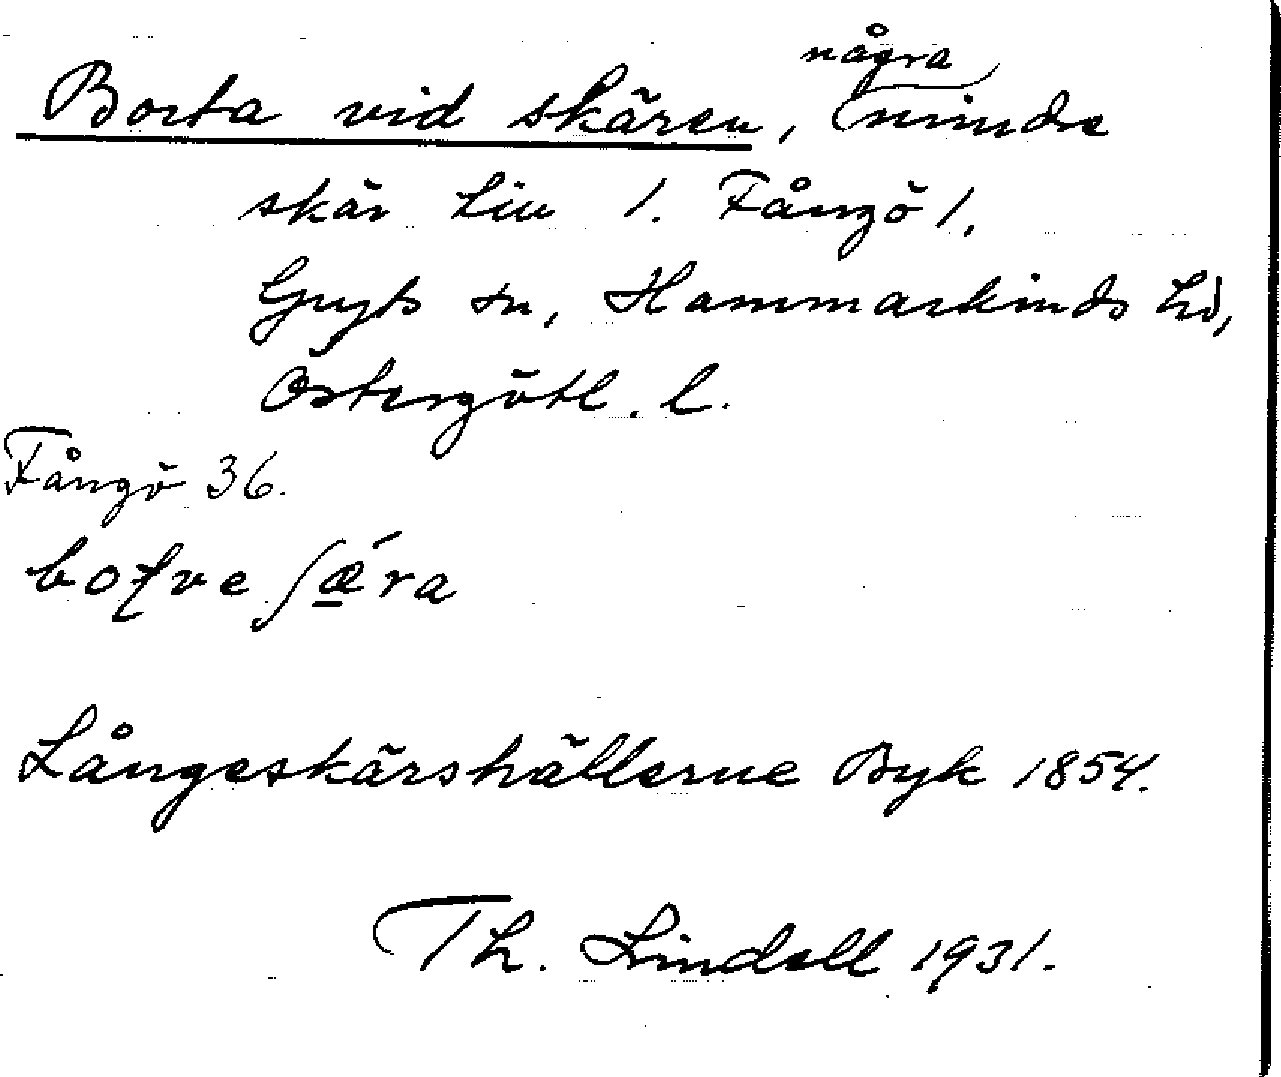 Borta vid skären, några mindre
skär Liu 1. Fångö 1.
Gryts sn, Hammarkinds hd,
Östergötl. l.
Fångö 36.
Långeskärshällerne Byk 1854.
Th. Lindell 1931.